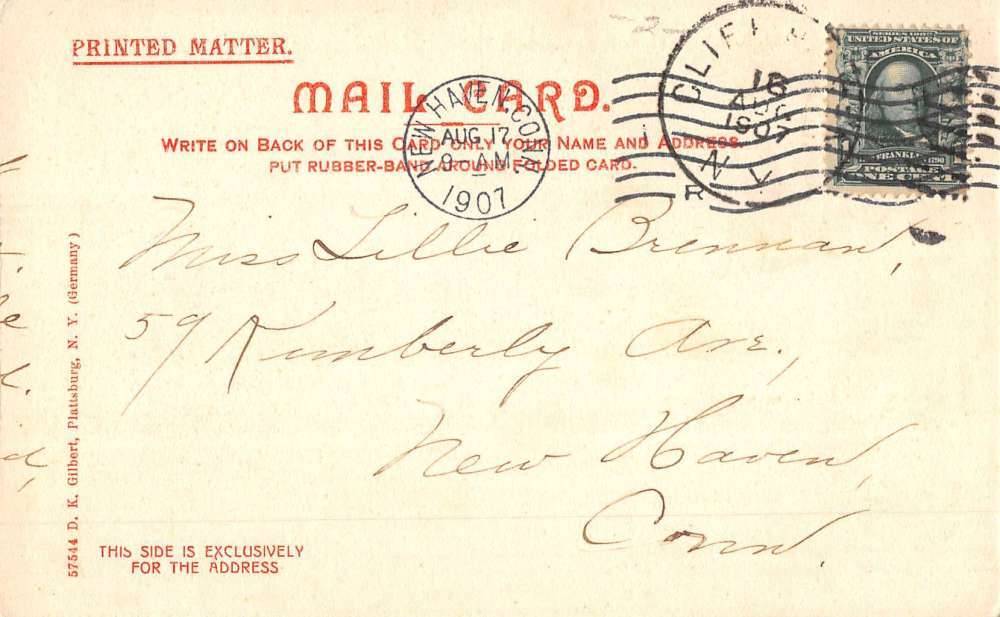 PRINTED MATTER.
MAIL CARD.
WRITE ON BACK OF THIS CARD ONLY YOUR NAME AND ADDRESS.
PUT RUBBER-BAND AROUND FOLDED CARD.
NEW HAVEN, CONN.
AUG. 17
9-AM
1907
CLIF
16
AUG
1907
N.Y.
R
SERIES 1902
UNITED STATES OF
AMERICA
FRANKLIN 1790
POSTAGE
ONE CENT
Miss Lillie Brennan,
59 Kimberly Ave.,
New Haven,
Conn.
57544 D. K. Gilbert, Plattsburg, N. Y. (Germany)
THIS SIDE IS EXCLUSIVELY
FOR THE ADDRESS